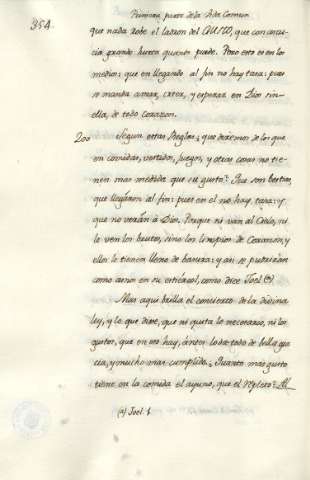 354.
Primera parte de la Vida Comun
que nada dote el ladron del gusto, que con ansia
cia grande hurta quanto puede. Pero esto es en los
medios: que en llegando al fin no hay tara: pues
se manda amar, creer, y esperar en Dios sin
ella, de todo corazon.
200 Segun estas Reglas; que diremos de los que
en comidas, vestidos, juegos, y otras cosas no tie-
nen mas medida que su gusto? Que son bestias,
que llegaron al fin: pues en el no hay tara: y
que no verán à Dios. Porque ni van al Cielo, ni
le ven los brutos, sino los limpios de Corazon, y
ellos le tienen lleno de basura: y asi se pudrieron
como asnos en su estiercol, como dice Joel (a)
Mas aqui brilla el concierto de la divina
ley, y lo que dixe, que ni quita lo necesario, ni los
gustos, que en eso hay, antes lo da todo de bella gra
cia, y mucho mas cumplido. Quanto mas gusto
tiene en la comida el ayuno, que el Repleto? Al
(a) Joel. 1.